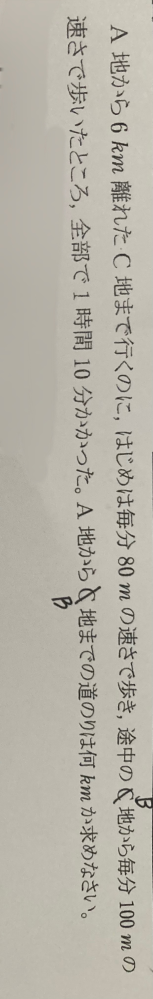 A 地から 6 km 離れた C 地まで行くのに, はじめは毎分 80 m の速さで歩き, 途中の C 地から毎分 100 m の
B
速さで歩いたところ, 全部で 1 時間 10 分かかった。A 地から C 地までの道のりは何 km か求めなさい。
B